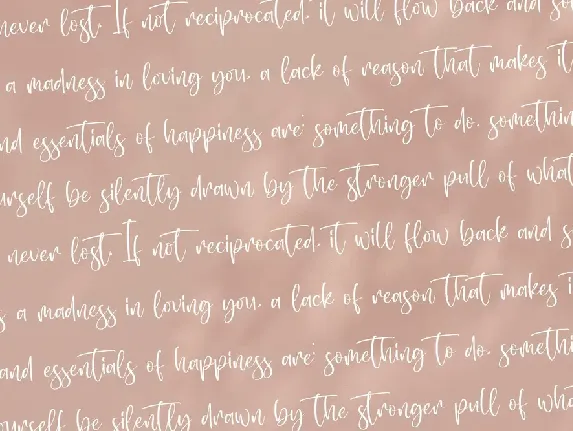 never lost. If not reciprocated, it will flow back and so
a madness in loving you, a lack of reason that makes it
nd essentials of happiness are: something to do, somethin
urself be silently drawn by the stronger pull of what
never lost. If not reciprocated, it will flow back and s
s a madness in loving you, a lack of reason that makes i
and essentials of happiness are: something to do, somethi
ourself be silently drawn by the stronger pull of wha